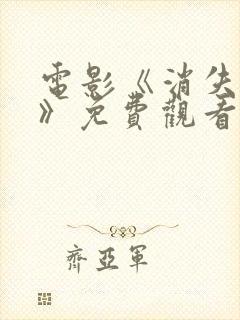 電影《消失
》免費觀看
齊亞軍